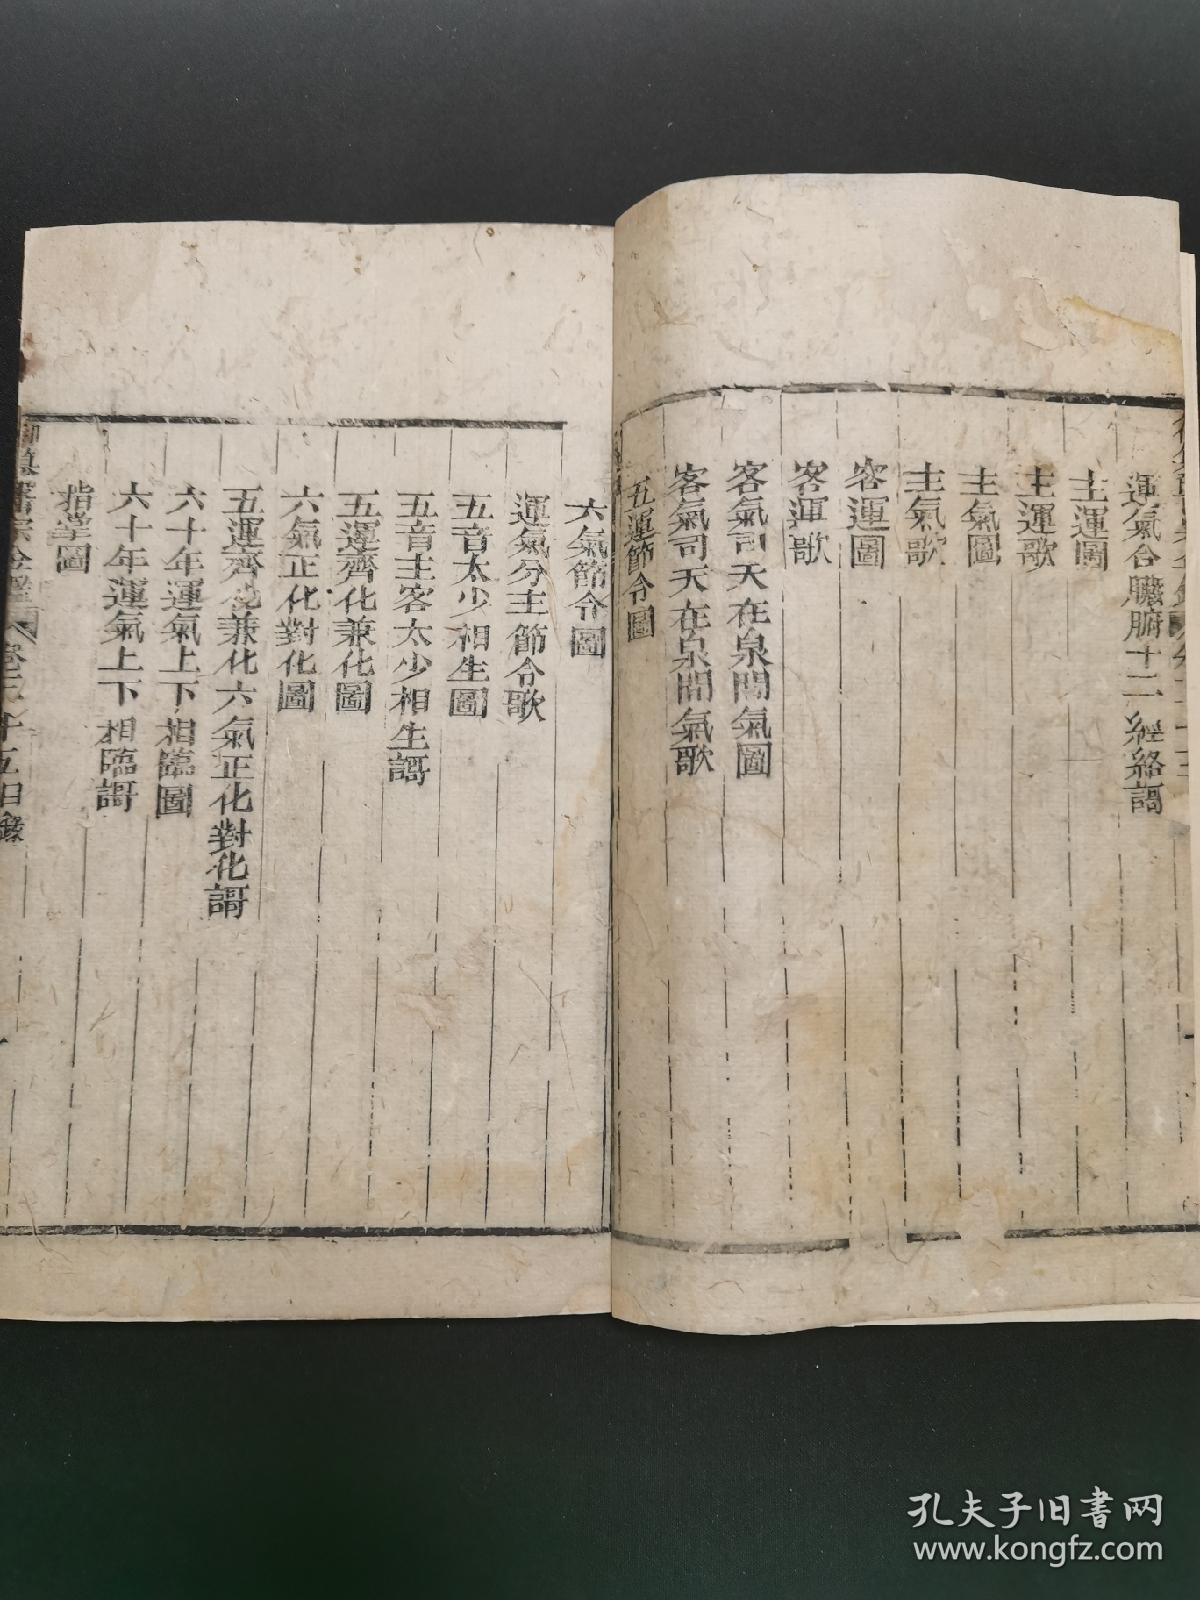 運氣合臟腑十二經絡謌
主運圖
主運歌
主氣圖
主氣歌
客運圖
客運歌
客氣司天在泉間氣圖
客氣司天在泉間氣歌
五運節令圖
六氣節令圖
運氣分主節令歌
五音太少相生圖
五音主客太少相生謌
五運齊化兼化圖
六氣正化對化圖
五運齊化兼化六氣正化對化謌
六十年運氣上下相臨圖
六十年運氣上下相臨謌
指掌圖
御纂醫宗金鑑 卷三十五目錄
孔夫子旧书网
www.kongfz.com